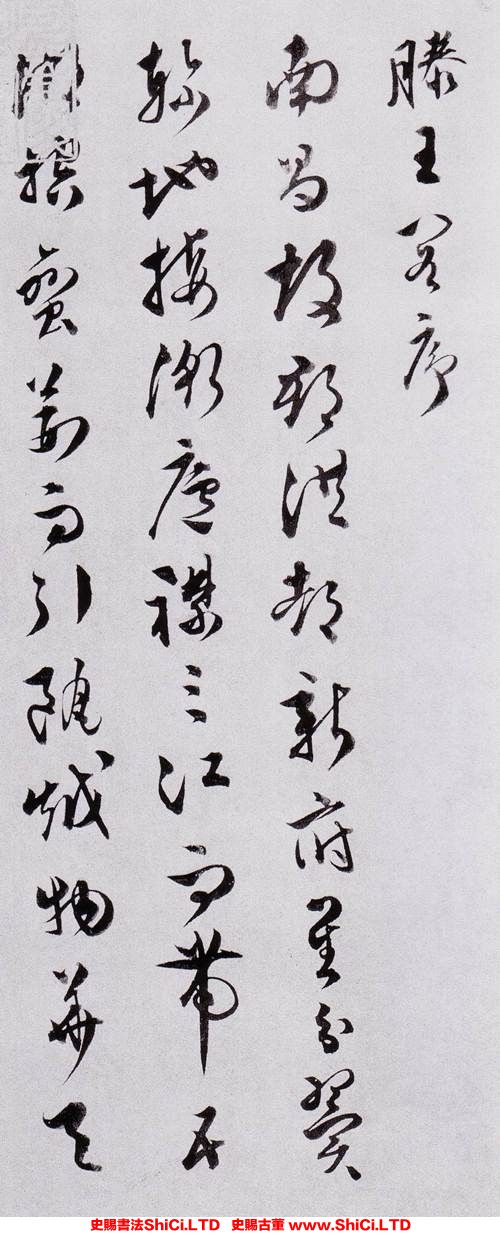 滕王閣序
南昌故郡洪都新府星分翼
軫地接衡廬襟三江而帶五
湖控蠻荊而引甌越物華天
史賜書法ShiCi.LTD 史賜古董 www.ShiCi.LTD